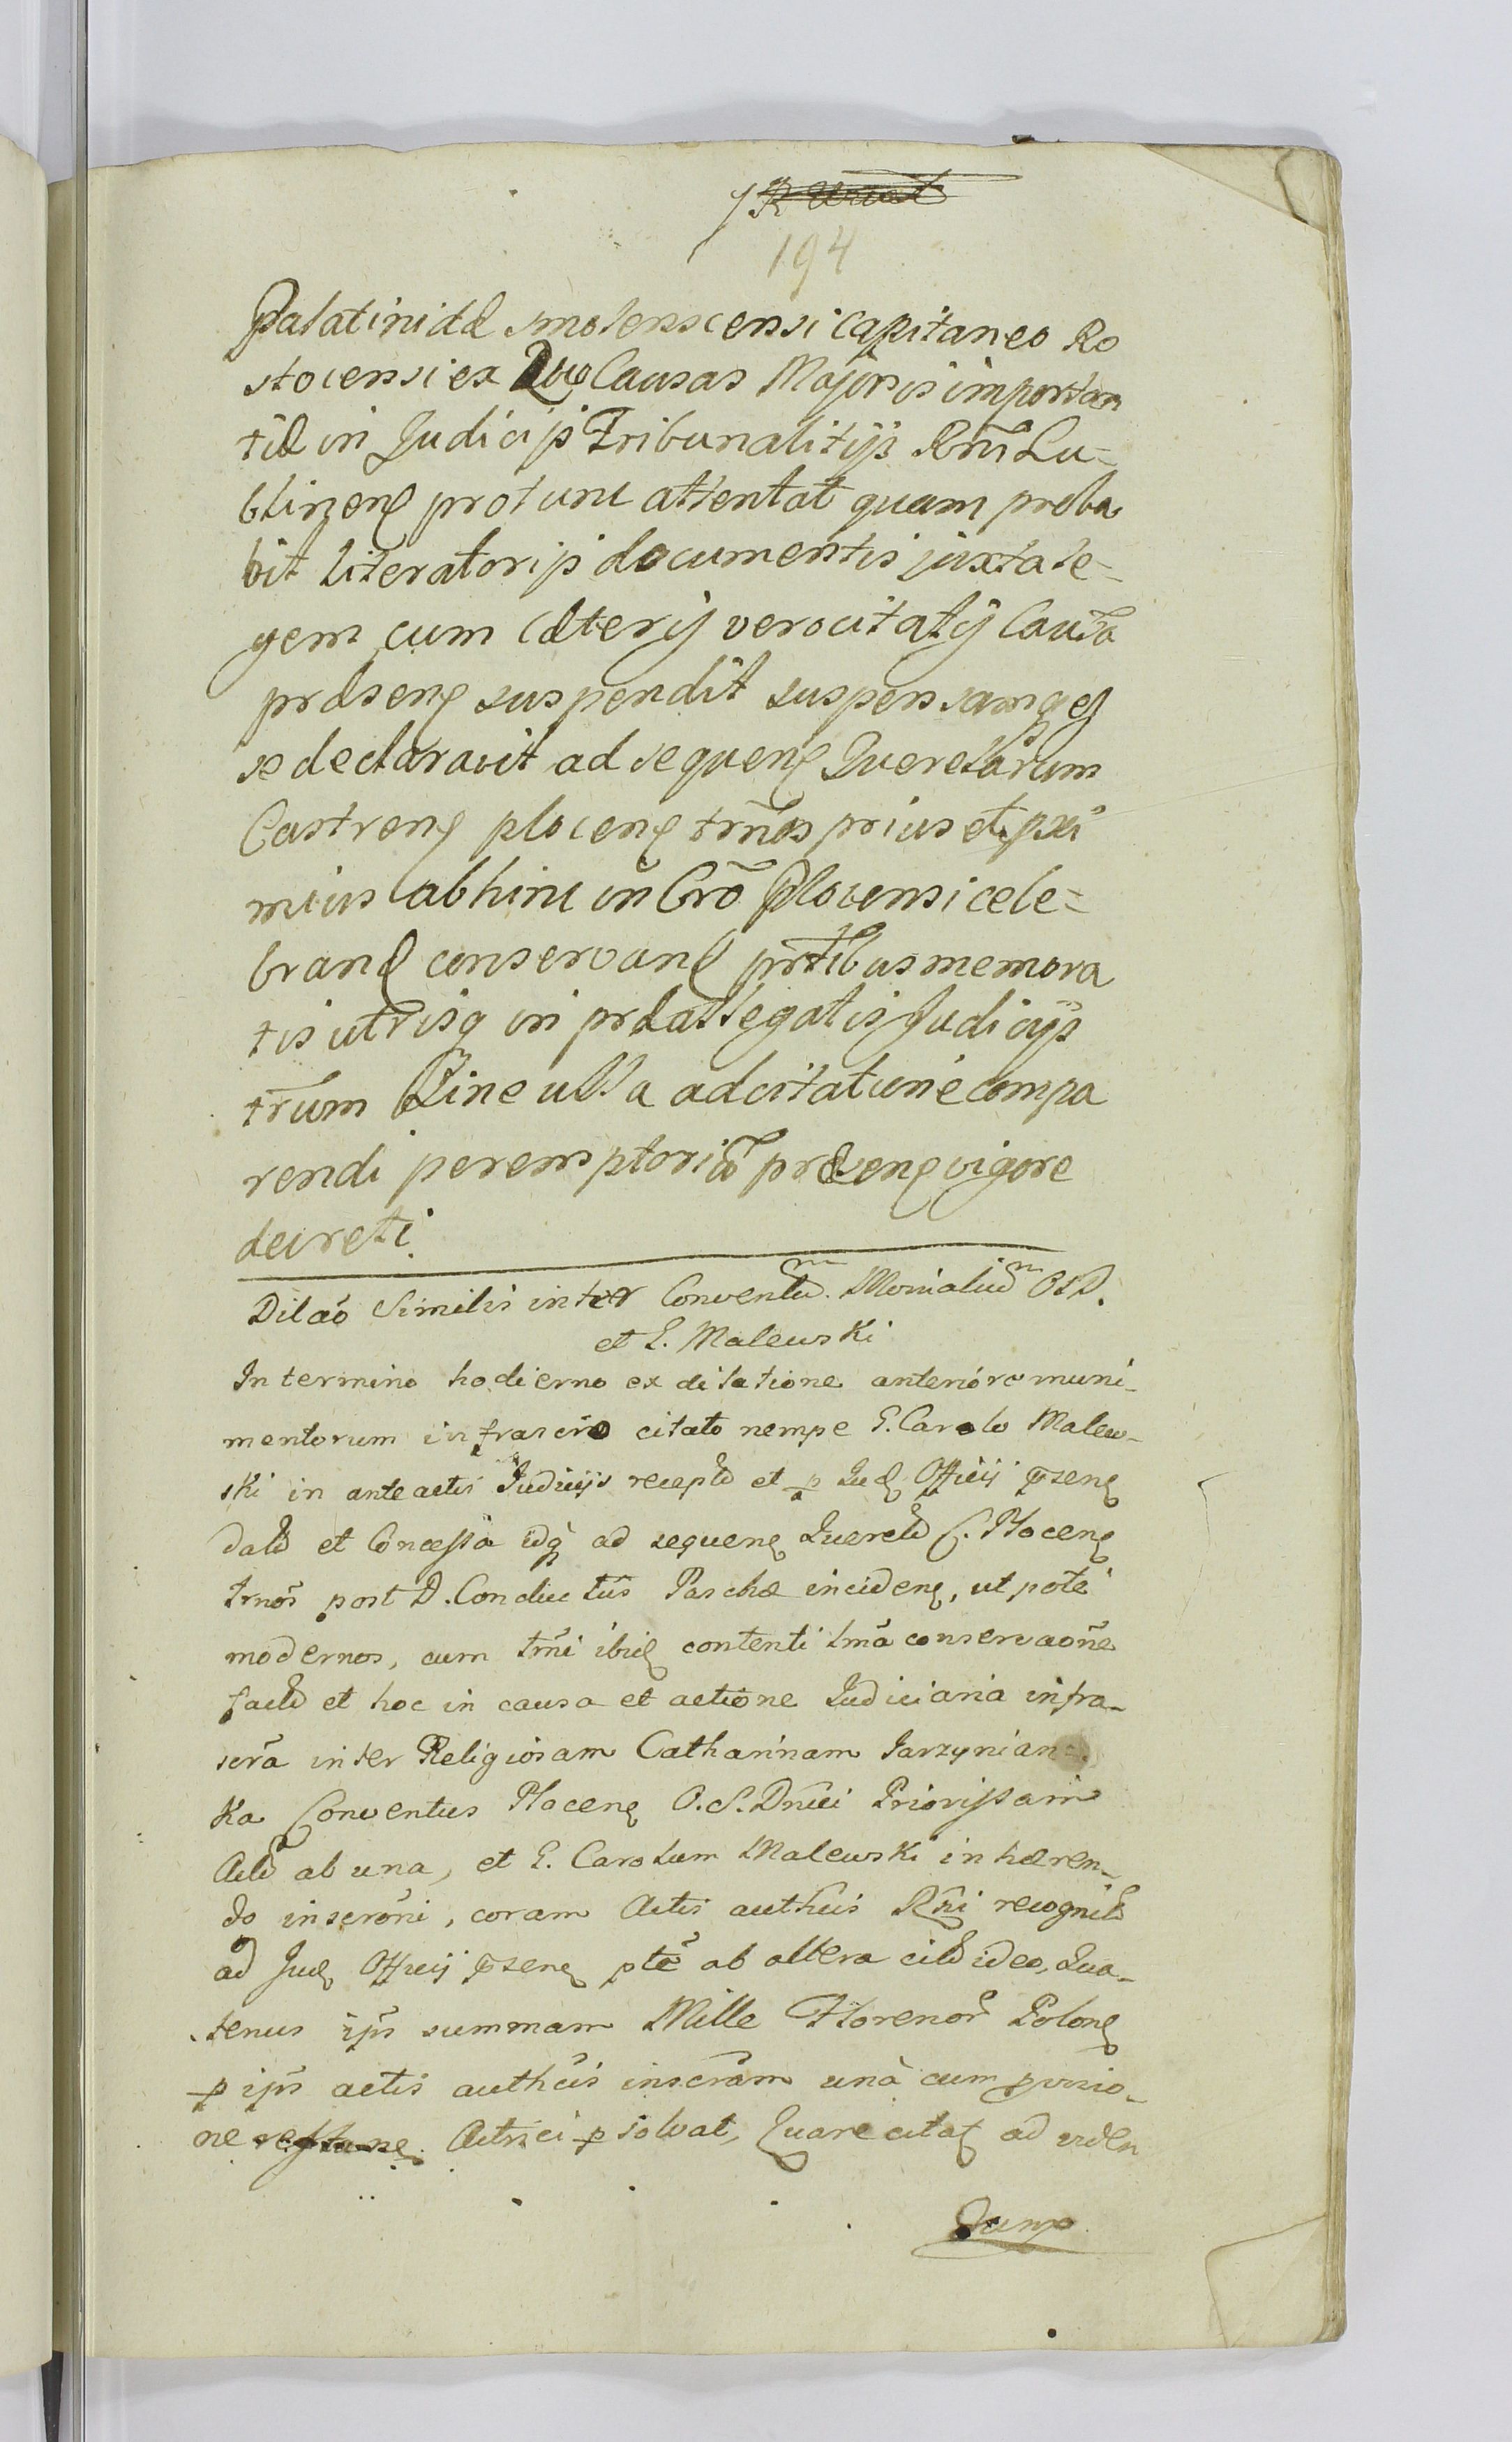 194
Palatinidæ Smolenscensi Capitaneo Ro
stocensi ex Causas Majoris importan
tiæ in Judicijs Tribunalitijs Rñi Lu=
blineñ protunc attentat quam proba
bit literatorijs documentis juxta le=
gem cum cæterij vero citatij Causã
præseñ suspendit suspensamq ej
se declaravit ad sequeñ Querelarum
Castreñ ploceñ trños prius et pxi
mius abhinc in Crõ Plocensi cele=
brand conservand prtibus memora
tis utrisq in præallegatis Judicijs
trum Sine ulla adcitatiune compa
rendi peremptoriã præseñ vigore
decreti
Dilaõ Similis inter Conventum Monialium O.S.D.
et G. Malewski
In termino hodierno ex dilatione anteriore muni-
mentorum infrascrõ citato nempe G. Carolo Malew-
ski in anteactis Judicijs recepta et p Jud Officij pseñ
data et Concessa idq ad sequeñ Querelã C. Ploceñ
trños post D. Conductus Paschæ incideñ, ut pote
modernos, cum trñi ibid contenti trnã conservaoñe
factã et hoc in causa et actione Judiciaria infra-
scrã inter Religiosam Catharinam Jarzynian=
ka Conventus Ploceñ O.S. Dñici Priorissam
Actã ab una, et G. Carolum Malewski inhæren-
do inscrõni, coram Actis authcis Rñi recognitã
ad Jud Officij pseñ ptẽ ab altera citã ideo, Qua-
tenus ips summam Mille Florenor Poloñ
p ips actis authcis inscrãm unà cum provisio-
ne Actrici p solvat, Quare citat ad viden
dump